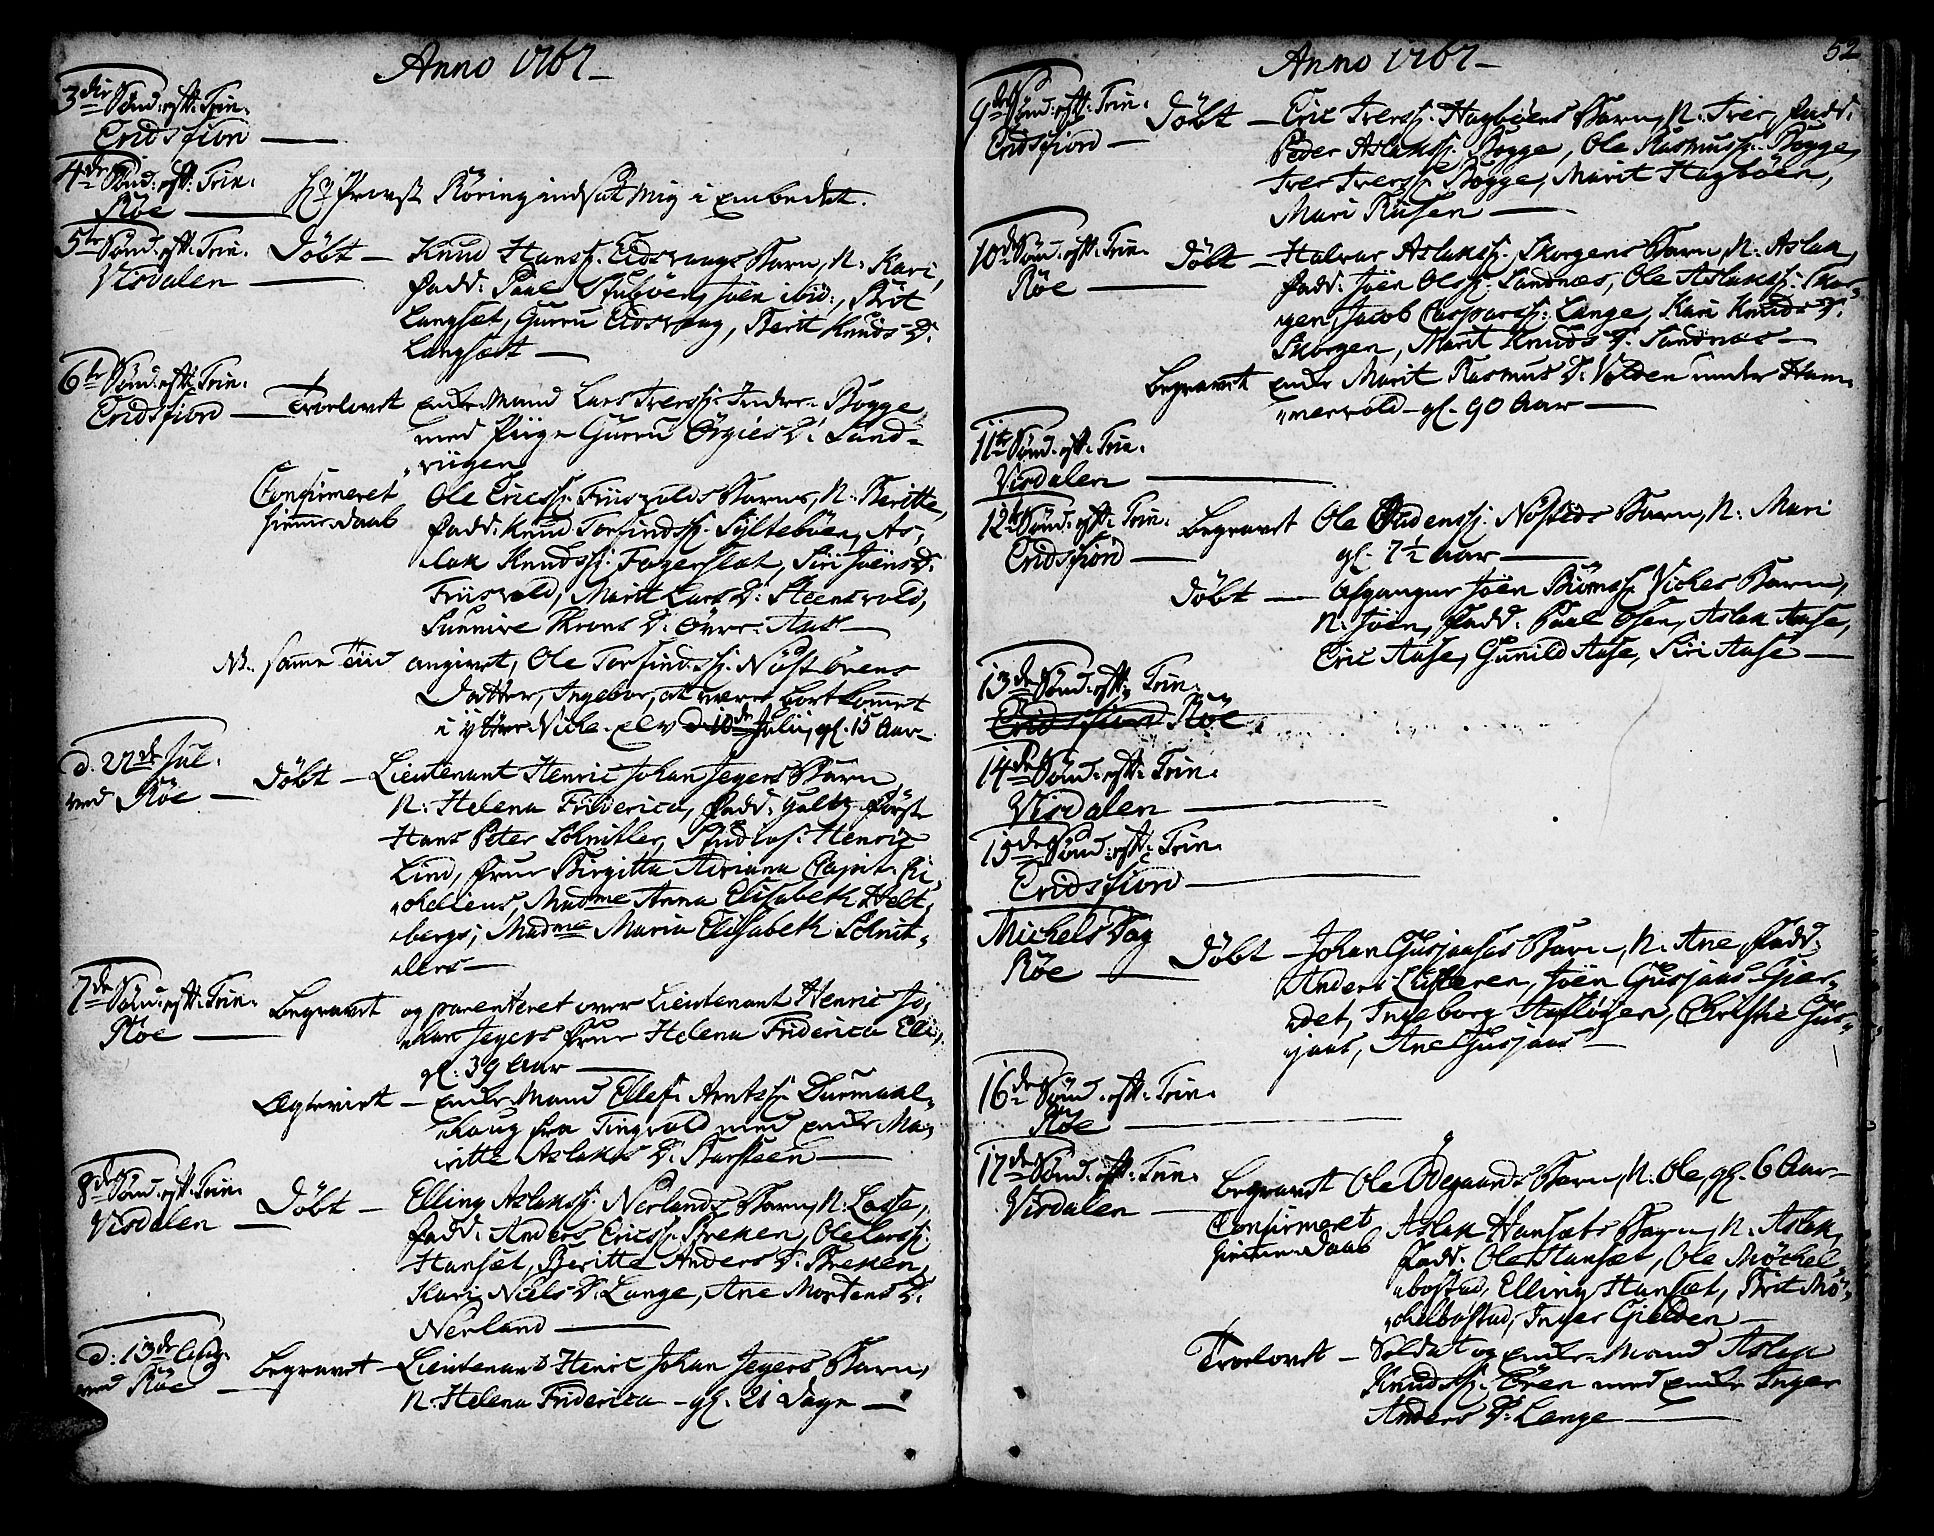 Anno 1767
3die Sönd: eft: Trin.
Eridsfiord
4de Sönd: eft: Trin.
Röe
Hr Provst Röring indsat mig i Embedet.
5te Sönd: eft: Trin.
Visdalen
Döbt Knud Hanss: Eidsvaags Barn, N: Kari,
fadd: Joen ibid:, Brit
Langset, Gurru Eidsvaag, Berit Knuds D:
Langset
6te Sönd: eft: Trin.
Eridsfiord
Troelovet Enke Mand Lars Iverss: Indre Bogge
med Piige Gurru D: Sand-
viigen
Confirmeret
hiemme-daab
Ole Ericss: Friisvolds Barn, N: Beritte,
fadd: Knud Torfindss: Syltebøen, As-
lak Knudss: Fagerslet, Siri Joens D:
Friisvold, Marit Lars D: Steensvold,
Sunnive D: Övre-Aas
NB. samme Tiid angivet, Ole Torfindss: Nöstböens
Datter, Ingebor, at være bortkommet
i yttre Vicke-elv d: 10de Julii, gl. 15 Aar
d. 22de Jul.
ved Röe
Döbt Lieutenant Henric Johan Jegers Barn
N: Helena Friderica, fadd:
Hans Peter Schnitler, Stud: Henric
Lind, Frue Birgitta Adriana Capit:
Madme Anna Elisabeth Helt-
bergs; Madme Maria Elisabeth Schnit-
lers
7de Sönd: eft: Trin.
Röe
Begravet og parenteret over Lieutenant Henric Jo-
han Jegers Frue Helena Friderica
gl. 39 Aar
Egteviet Enke Mand Ellef Arntss:
haug fra Tingvold med Enke Ma-
ritte Aslaks D: Barsteen
8de Sönd: eft: Trin.
Visdalen
Döbt Elling Aslakss: Nerlands Barn, N: Lasse,
fadd: Anders Ericss: Breken, Ole Larss:
Hanset, Beritte Anders D: Breken,
Kari Niels D: Lange, Ane Mortens D:
Nerland
d: 13de Aug.
ved Röe
Begravet Lieutenant Henric Johan Jegers Barn,
N: Helena Friderica gl. 21 Dage
52
Anno 1767
9de Sönd: eft: Trin.
Eridsfiord
Döbt Eric Iverss: Hagböens Barn, N: Iver, fadd:
Peder Aslakss: Bogge, Ole Rasmuss: Bogge,
Iver Iverss: Bogge, Marit Hagböen,
Mari Rusen
10de Sönd: eft: Trin.
Röe
Döbt Halvar Aslakss: Skorgens Barn, N: Aslak,
fadd: Joen Olss: Sandnæs, Ole Aslakss: Skor-
gen, Jacob Casperss: Lange, Kari Knuds D:
Skorgen, Marit Knuds D: Sandnæs
Begravet Enke Marit Rasmus D: Volden under Ham-
mervold gl. 90 Aar
11te Sönd: eft: Trin.
Visdalen
12te Sönd: eft: Trin.
Eridsfiord
Begravet Ole Audenss: Barn, N: Mari
gl. 7½ Aar
Döbt Afgangne Joen Biörnss: Vickes Barn,
N: Joen, fadd: Paul Osen, Aslak Aase,
Eric Aase, Gunild Aase, Siri Aase
13de Sönd: eft: Trin.
Eridsfiord Röe
14de Sönd: eft: Trin.
Visdalen
15de Sönd: eft: Trin.
Eridsfiord
Michels Dag
Röe
Döbt Johan Gusjaases Barn, N: Ane fadd:
Anders Joen Gusjaas Gier-
det, Ingeborg Christie Gus-
jaas, Ane Gusjaas
16de Sönd: eft: Trin.
Röe
17de Sönd: eft: Trin.
Visdalen
Begravet Ole Ödegaards Barn, N: Ole, gl. 6 Aar
Confirmeret
hiemme-daab
Aslak Hansets Barn, N: Aslak,
fadd: Ole Hanset, Ole Möckel-
bostad, Elling Hanset, Brit Mö-
ckelbostad, Inger Gielden
Troelovet Soldat og Enke-Mand Aslak
Knudss: Ören med Enke Inger
Anders D: Lange